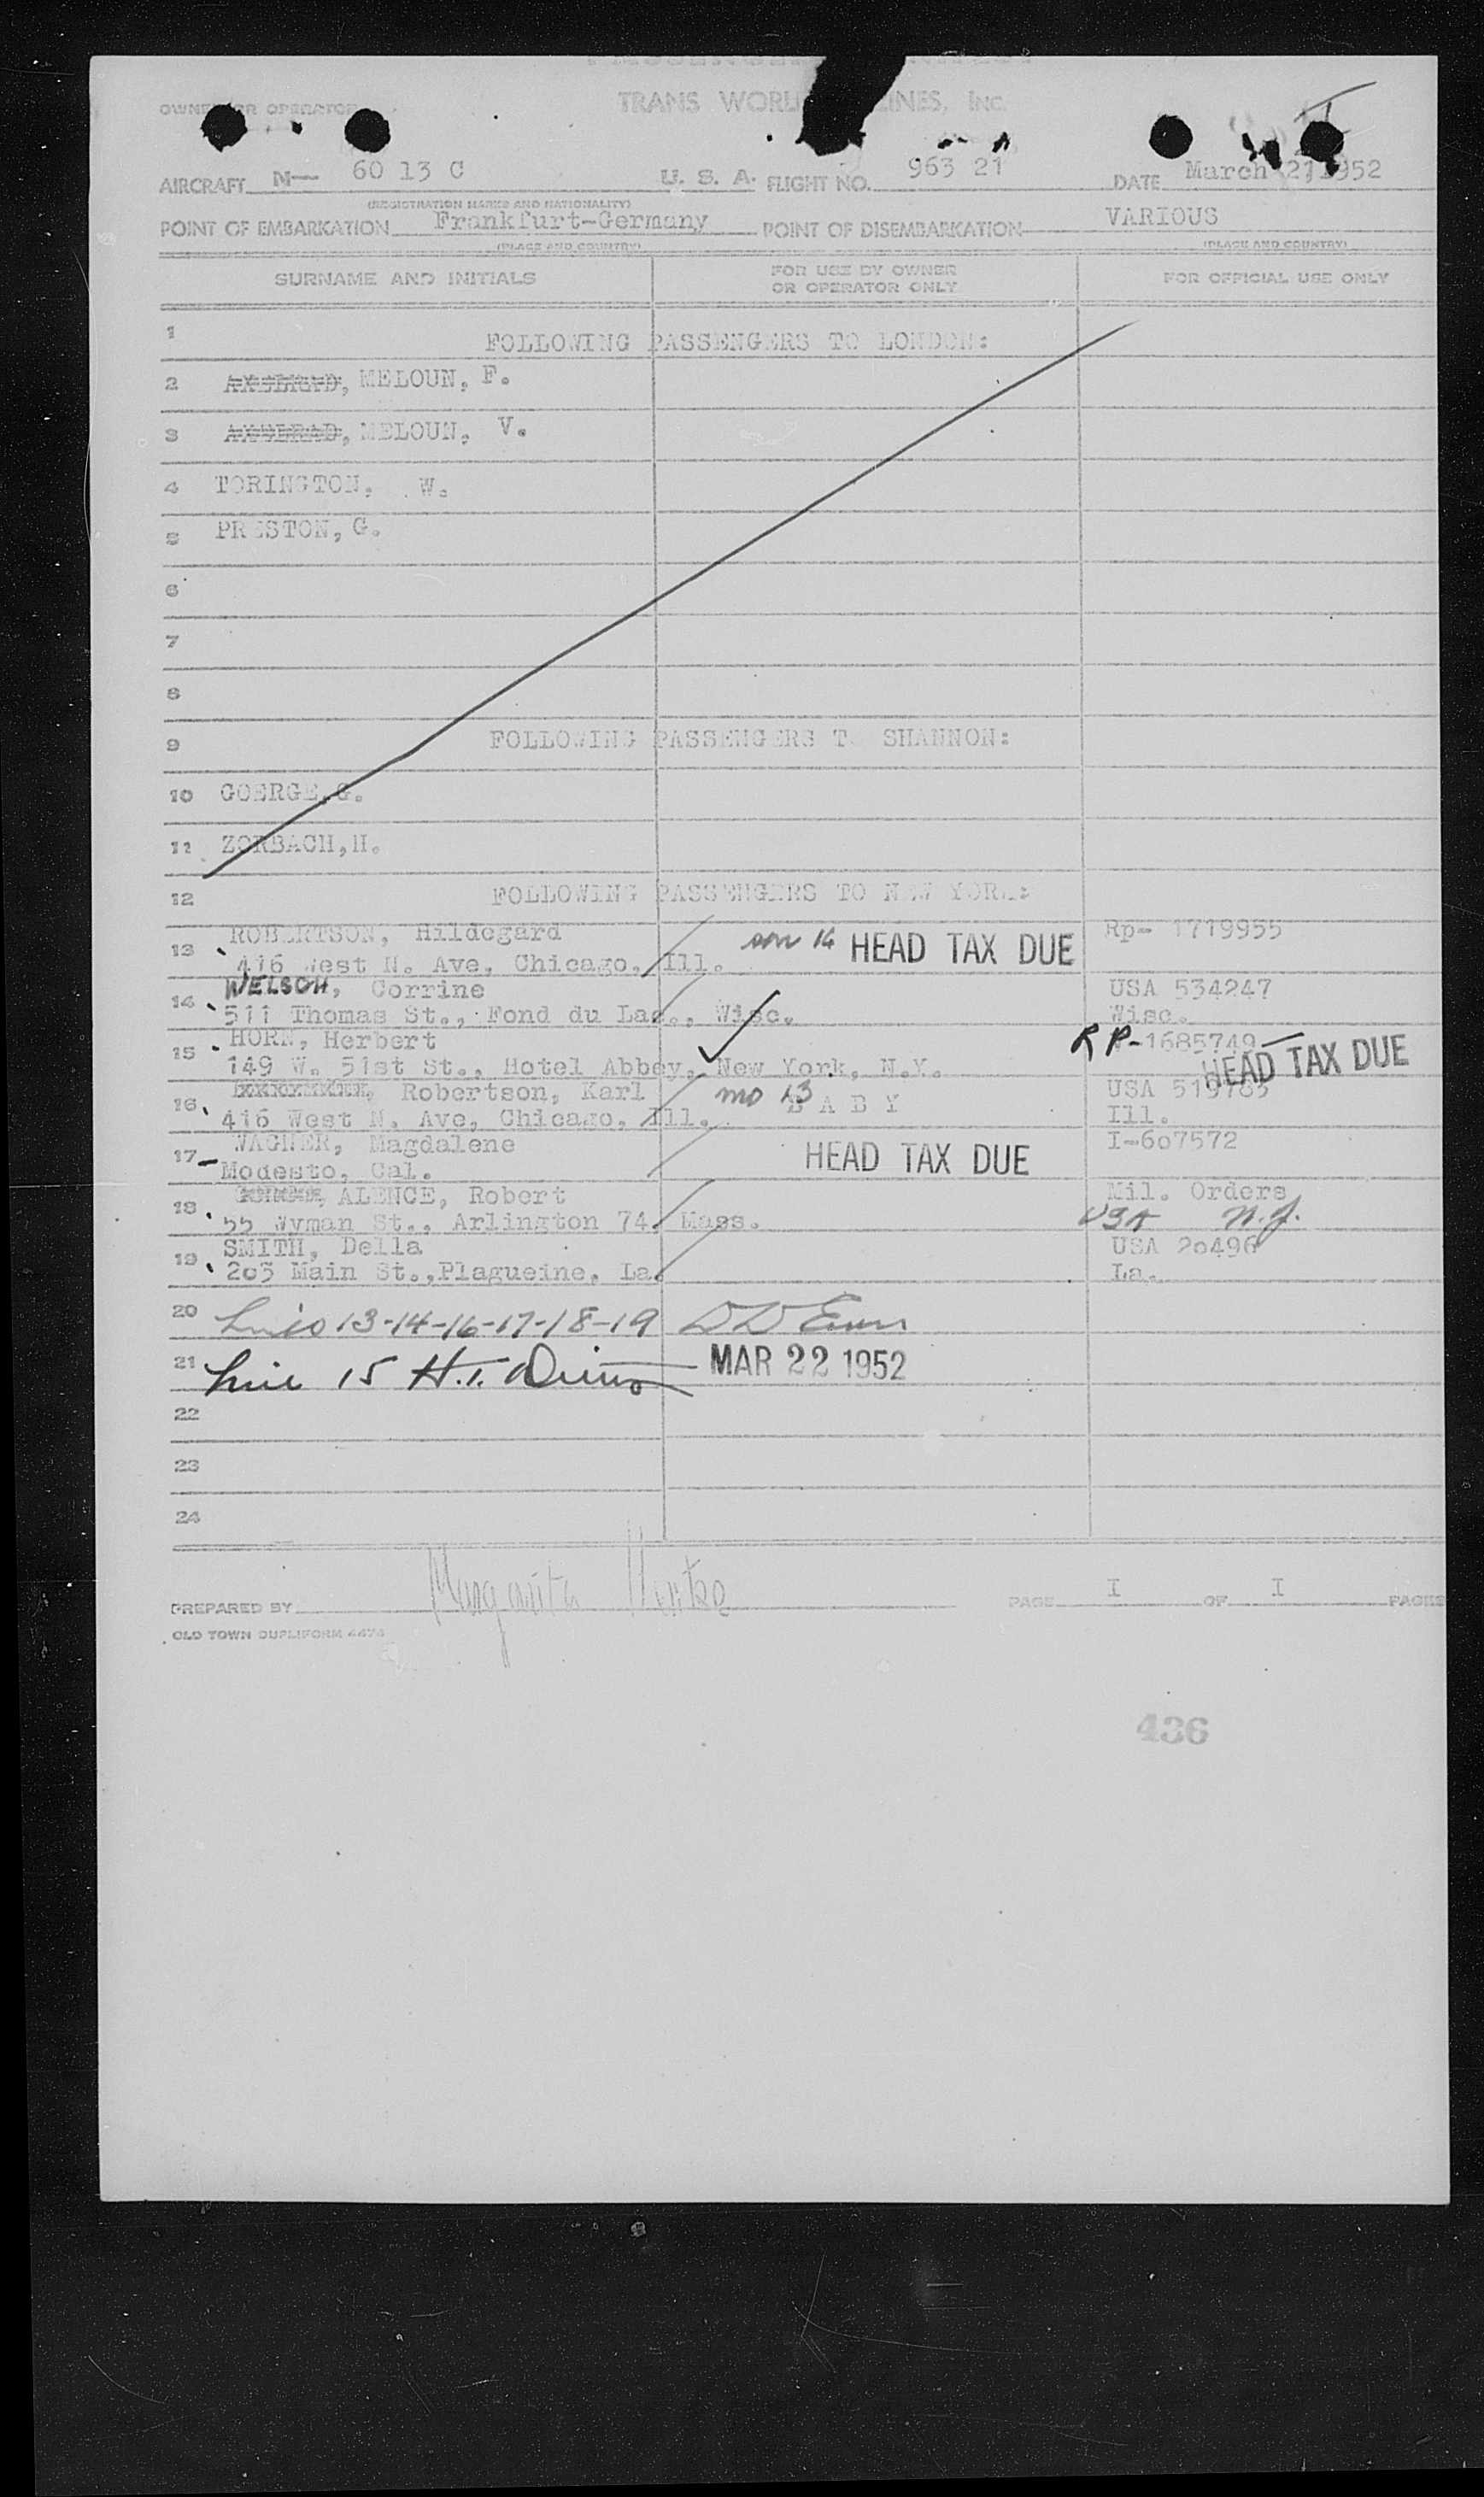 TRANS WORLD LINES, INC.
OWNER OR OPERATOR
AIRCRAFT N— 60 13 C U. S. A. FLIGHT NO. 963 21 DATE March 21 1952
(REGISTRATION MARKS AND NATIONALITY)
POINT OF EMBARKATION Frankfurt-Germany POINT OF DISEMBARKATION VARIOUS
(PLACE AND COUNTRY) (PLACE AND COUNTRY)
SURNAME AND INITIALS FOR USE BY OWNER OR OPERATOR ONLY FOR OFFICIAL USE ONLY
1 FOLLOWING PASSENGERS TO LONDON:
2 MELOUN, F.
3 MELOUN, V.
4 TORINGTON, W.
5 PRESTON, G.
6
7
8
9 FOLLOWING PASSENGERS TO SHANNON:
10 GOERGE, G.
11 ZORBACH, H.
12 FOLLOWING PASSENGERS TO NEW YORK:
13 ROBERTSON, Hildegard son 16 HEAD TAX DUE Rp- 1719955
416 West N. Ave, Chicago, Ill.
14 WELSCH, Corrine USA 534247
511 Thomas St., Fond du Lac., Wisc. Wisc.
15 HORN, Herbert RP-1685749 HEAD TAX DUE
149 W. 51st St., Hotel Abbey, New York, N.Y.
16 Robertson, Karl mo 13 BABY USA 519763
416 West N. Ave, Chicago, Ill. Ill.
17 WAGNER, Magdalene HEAD TAX DUE I-607572
Modesto, Cal.
18 ALENCE, Robert Mil. Orders
55 Wyman St., Arlington 74, Mass. USA N.J.
19 SMITH, Della USA 20496
205 Main St., Plagueine, La. La.
20 Lines 13-14-16-17-18-19
21 Line 15 H.T. MAR 22 1952
22
23
24
PREPARED BY Margarita PAGE I OF I PAGES
OLD TOWN DUPLIFORM 4474
436